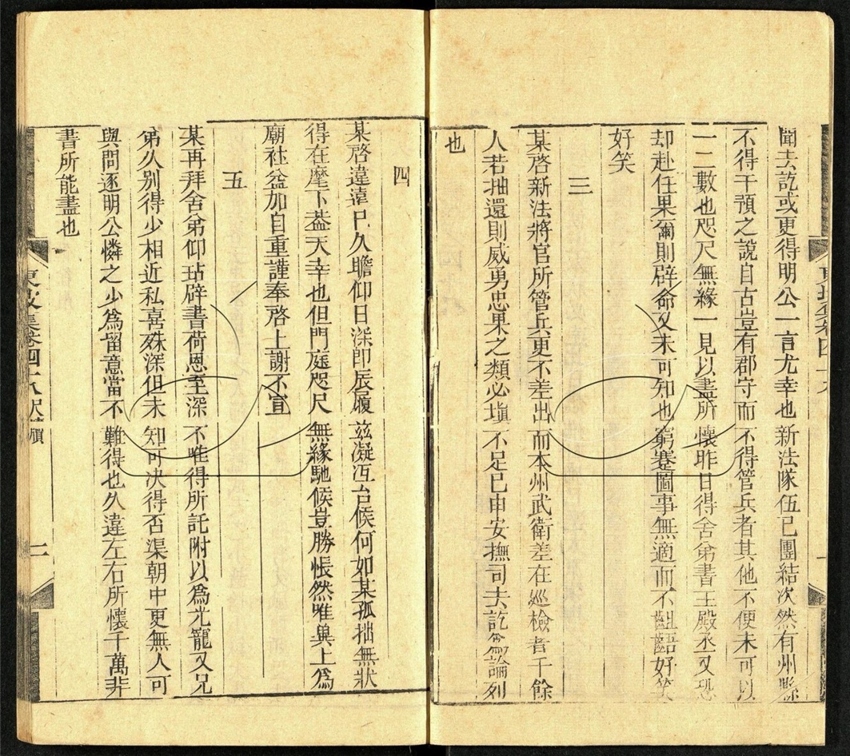 聞去訖或更得明公一言尤幸也新法隊伍已團結次然有州縣
不得干預之說自古豈有郡守而不得管兵者其他不便未可以
一二數也咫尺無緣一見以盡所懷昨日得舍弟書王殿丞又恐
却赴任果爾則辟命又未可知也窮蹇圖事無適而不齟齬好笑
好笑
三
某啓新法將官所管兵更不差出而本州武衛差在廵檢者千餘
人若抽還則威勇忠果之類必塡不足已申安撫司去訖論列
也
四
某啓違遠已久瞻仰日深卽辰履玆凝沍台候何如某孤拙無狀
得在麾下葢天幸也但門庭咫尺無緣馳候豈勝悵然唯兾上爲
廟社益加自重謹奉啓上謝不宣
五
某再拜舍弟仰玷辟書荷恩至深不唯得所託附以爲光寵又兄
弟久別得少相近私喜殊深但未知可决得否渠朝中更無人可
與問逐明公憐之少爲留意當不難得也久違左右所懷千萬非
書所能盡也
東坡集卷四十八尺牘
二